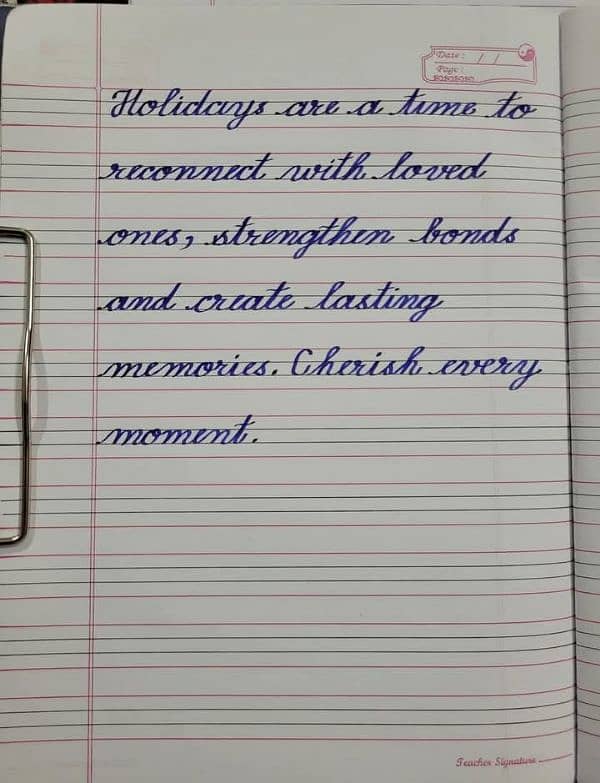 Date: / /
Page:
Holidays are a time to
reconnect with loved
ones, strengthen bonds
and create lasting
memories. Cherish every
moment.
Teacher Signature